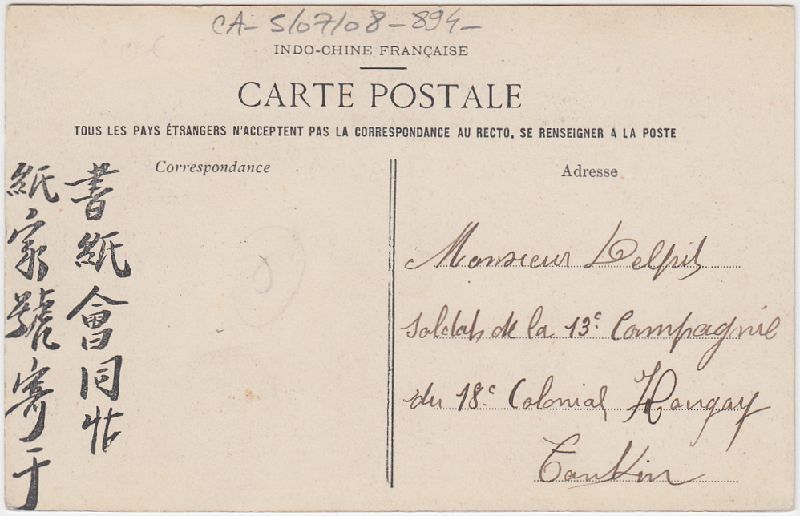 CA- 5/07/08-894-
INDO-CHINE FRANÇAISE
CARTE POSTALE
TOUS LES PAYS ÉTRANGERS N'ACCEPTENT PAS LA CORRESPONDANCE AU RECTO, SE RENSEIGNER A LA POSTE
Correspondance
書紙會同
紙家號寄于
Adresse
Monsieur Delpit
Soldat de la 13e Compagnie
du 18e Colonial Hongay
Tonkin